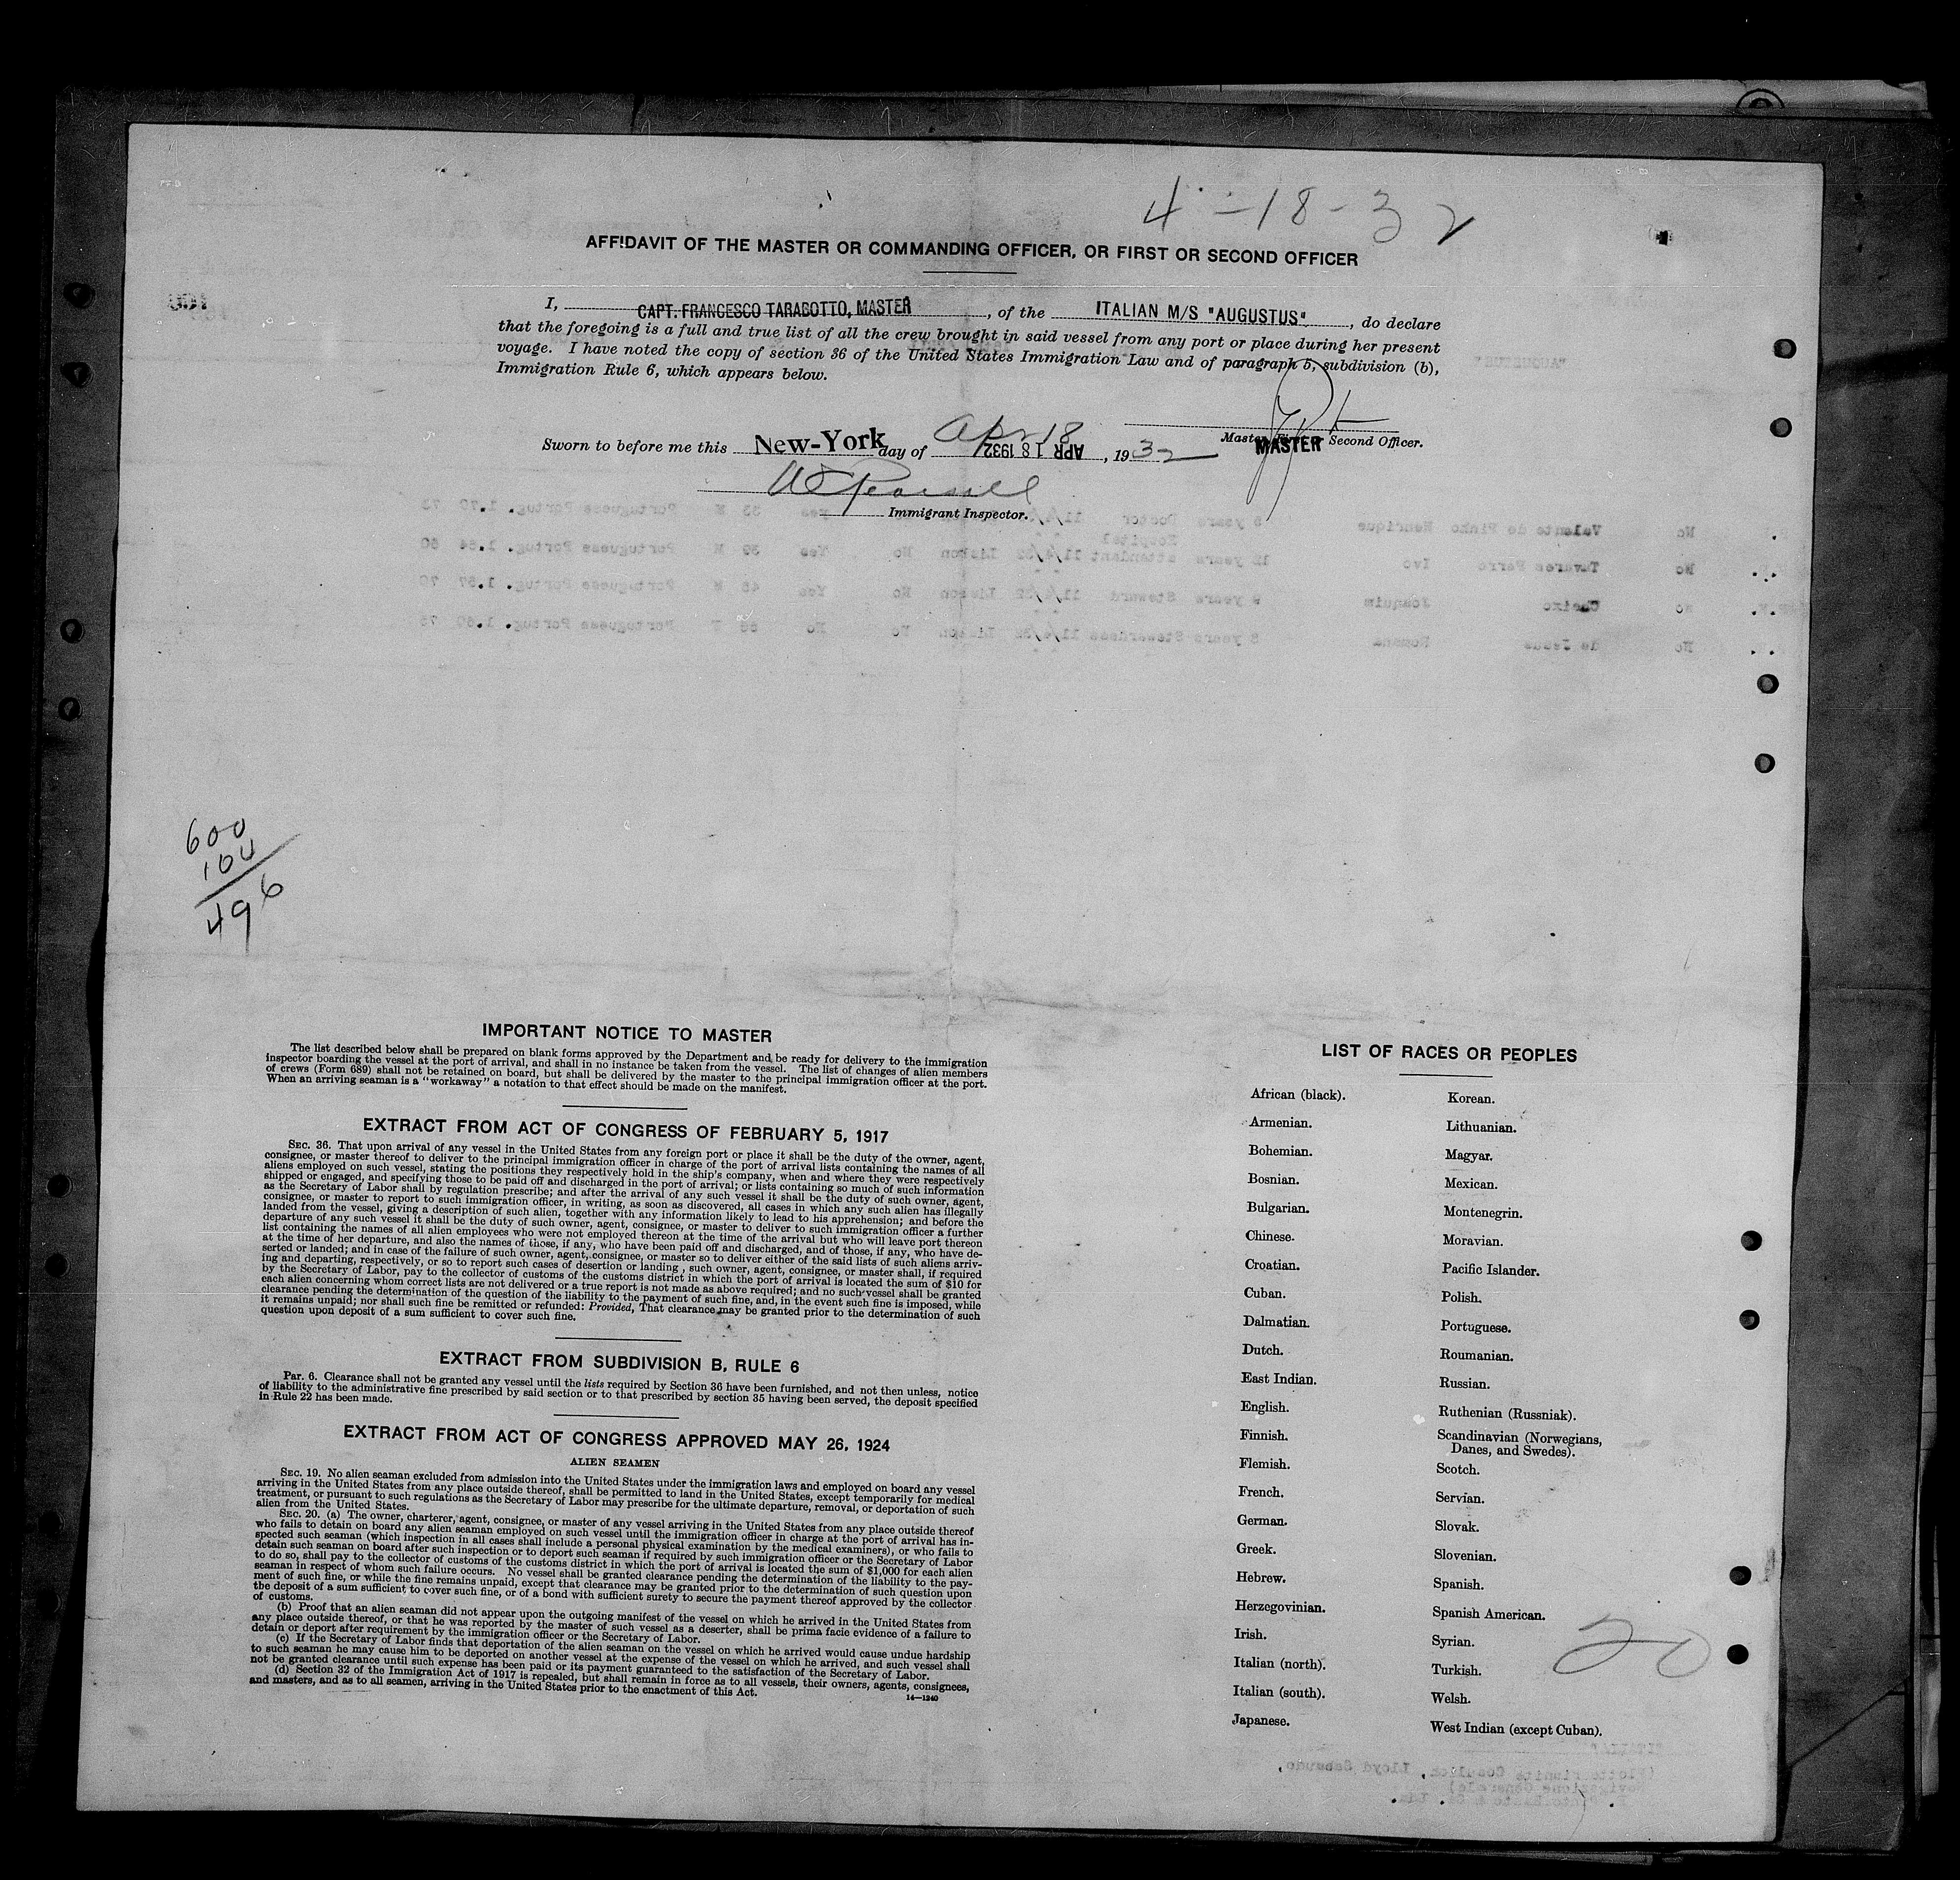 4-18-32
AFFIDAVIT OF THE MASTER OR COMMANDING OFFICER, OR FIRST OR SECOND OFFICER
I, CAPT. FRANCESCO TARABOTTO, MASTER, of the ITALIAN M/S "AUGUSTUS", do declare
that the foregoing is a full and true list of all the crew brought in said vessel from any port or place during her present
voyage. I have noted the copy of section 36 of the United States Immigration Law and of paragraph 5, subdivision (b),
Immigration Rule 6, which appears below.
Sworn to before me this New-York day of Apr 18 APR 18 1932, 1932
Master, First or Second Officer.
MASTER
Immigrant Inspector.
600
104
496
IMPORTANT NOTICE TO MASTER
The list described below shall be prepared on blank forms approved by the Department and be ready for delivery to the immigration
inspector boarding the vessel at the port of arrival, and shall in no instance be taken from the vessel. The list of changes of alien members
of crews (Form 689) shall not be retained on board, but shall be delivered by the master to the principal immigration officer at the port.
When an arriving seaman is a "workaway" a notation to that effect should be made on the manifest.
EXTRACT FROM ACT OF CONGRESS OF FEBRUARY 5, 1917
SEC. 36. That upon arrival of any vessel in the United States from any foreign port or place it shall be the duty of the owner, agent,
consignee, or master thereof to deliver to the principal immigration officer in charge of the port of arrival lists containing the names of all
aliens employed on such vessel, stating the positions they respectively hold in the ship's company, when and where they were respectively
shipped or engaged, and specifying those to be paid off and discharged in the port of arrival; or lists containing so much of such information
as the Secretary of Labor shall by regulation prescribe; and after the arrival of any such vessel it shall be the duty of such owner, agent,
consignee, or master to report to such immigration officer, in writing, as soon as discovered, all cases in which any such alien has illegally
landed from the vessel, giving a description of such alien, together with any information likely to lead to his apprehension; and before the
departure of any such vessel it shall be the duty of such owner, agent, consignee, or master to deliver to such immigration officer a further
list containing the names of all alien employees who were not employed thereon at the time of the arrival but who will leave port thereon
at the time of her departure, and also the names of those, if any, who have been paid off and discharged, and of those, if any, who have de-
serted or landed; and in case of the failure of such owner, agent, consignee, or master so to deliver either of the said lists of such aliens arriv-
ing and departing, respectively, or so to report such cases of desertion or landing, such owner, agent, consignee, or master shall, if required
by the Secretary of Labor, pay to the collector of customs of the customs district in which the port of arrival is located the sum of $10 for
each alien concerning whom correct lists are not delivered or a true report is not made as above required; and no such vessel shall be granted
clearance pending the determination of the question of the liability to the payment of such fine, and, in the event such fine is imposed, while
it remains unpaid; nor shall such fine be remitted or refunded: Provided, That clearance may be granted prior to the determination of such
question upon deposit of a sum sufficient to cover such fine.
EXTRACT FROM SUBDIVISION B, RULE 6
Par. 6. Clearance shall not be granted any vessel until the lists required by Section 36 have been furnished, and not then unless, notice
of liability to the administrative fine prescribed by said section or to that prescribed by section 35 having been served, the deposit specified
in Rule 22 has been made.
EXTRACT FROM ACT OF CONGRESS APPROVED MAY 26, 1924
ALIEN SEAMEN
SEC. 19. No alien seaman excluded from admission into the United States under the immigration laws and employed on board any vessel
arriving in the United States from any place outside thereof, shall be permitted to land in the United States, except temporarily for medical
treatment, or pursuant to such regulations as the Secretary of Labor may prescribe for the ultimate departure, removal, or deportation of such
alien from the United States.
SEC. 20. (a) The owner, charterer, agent, consignee, or master of any vessel arriving in the United States from any place outside thereof
who fails to detain on board any alien seaman employed on such vessel until the immigration officer in charge at the port of arrival has in-
spected such seaman (which inspection in all cases shall include a personal physical examination by the medical examiners), or who fails to
detain such seaman on board after such inspection or to deport such seaman if required by such immigration officer or the Secretary of Labor
to do so, shall pay to the collector of customs of the customs district in which the port of arrival is located the sum of $1,000 for each alien
seaman in respect of whom such failure occurs. No vessel shall be granted clearance pending the determination of the liability to the pay-
ment of such fine, or while the fine remains unpaid, except that clearance may be granted prior to the determination of such question upon
the deposit of a sum sufficient to cover such fine, or of a bond with sufficient surety to secure the payment thereof approved by the collector
of customs.
(b) Proof that an alien seaman did not appear upon the outgoing manifest of the vessel on which he arrived in the United States from
any place outside thereof, or that he was reported by the master of such vessel as a deserter, shall be prima facie evidence of a failure to
detain or deport after requirement by the immigration officer or the Secretary of Labor.
(c) If the Secretary of Labor finds that deportation of the alien seaman on the vessel on which he arrived would cause undue hardship
to such seaman he may cause him to be deported on another vessel at the expense of the vessel on which he arrived, and such vessel shall
not be granted clearance until such expense has been paid or its payment guaranteed to the satisfaction of the Secretary of Labor.
(d) Section 32 of the Immigration Act of 1917 is repealed, but shall remain in force as to all vessels, their owners, agents, consignees,
and masters, and as to all seamen, arriving in the United States prior to the enactment of this Act.
14—1240
LIST OF RACES OR PEOPLES
African (black).
Armenian.
Bohemian.
Bosnian.
Bulgarian.
Chinese.
Croatian.
Cuban.
Dalmatian.
Dutch.
East Indian.
English.
Finnish.
Flemish.
French.
German.
Greek.
Hebrew.
Herzegovinian.
Irish.
Italian (north).
Italian (south).
Japanese.
Korean.
Lithuanian.
Magyar.
Mexican.
Montenegrin.
Moravian.
Pacific Islander.
Polish.
Portuguese.
Roumanian.
Russian.
Ruthenian (Russniak).
Scandinavian (Norwegians,
Danes, and Swedes).
Scotch.
Servian.
Slovak.
Slovenian.
Spanish.
Spanish American.
Syrian.
Turkish.
Welsh.
West Indian (except Cuban).
20